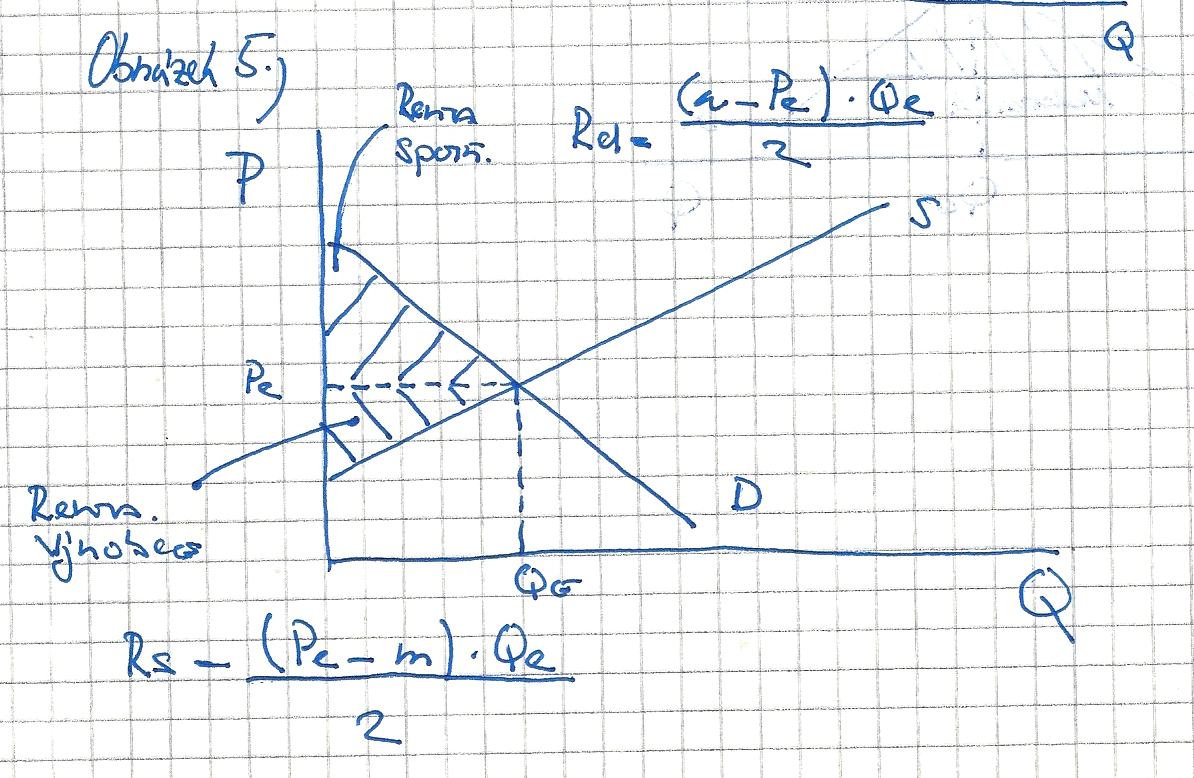 Q
Obrázek 5.)
Renta
spotř.
Rd = (a - Pe) · Qe
2
P
S
Pe
D
Renta.
výrobce
Qe
Q
Rs = (Pe - m) · Qe
2